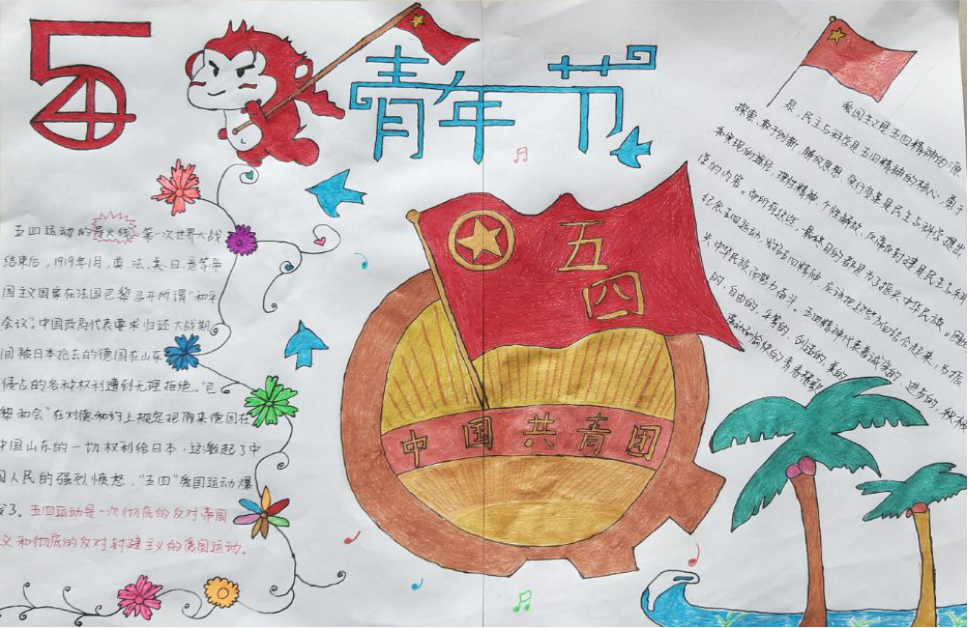 54
青年节
五四
中国共青团
五四运动的导火线：第一次世界大战
结束后，1919年1月，英、法、美、日、意等帝
国主义国家在法国巴黎召开所谓“和平
会议”，中国政府代表要求归还大战期
间被日本抢去的德国在山东
侵占的各种权利遭到无理拒绝。“巴
黎和会”在对德和约上规定把原来德国在
中国山东的一切权利给日本，这激起了中
国人民的强烈愤怒，“五四”爱国运动爆
发了。五四运动是一次彻底的反对帝国
义和彻底的反对封建主义的爱国运动。
爱国主义是五四精神的源
是，民主与科学是五四精神的核心，勇于
探索、敢于创新、解放思想、实行变革是民主与科学提出
和实现的途径，理性精神、个性解放、反帝反封建是民主与科
学的内容。而所有这些，最终目的都是为了振兴中华民族。因此
纪念五四运动，发扬五四精神，应该把这些方面结合起来，为振
兴中华民族而努力奋斗。五四精神代表着诚实的、进步的、积极
的、自由的、平等的、创造的、美的